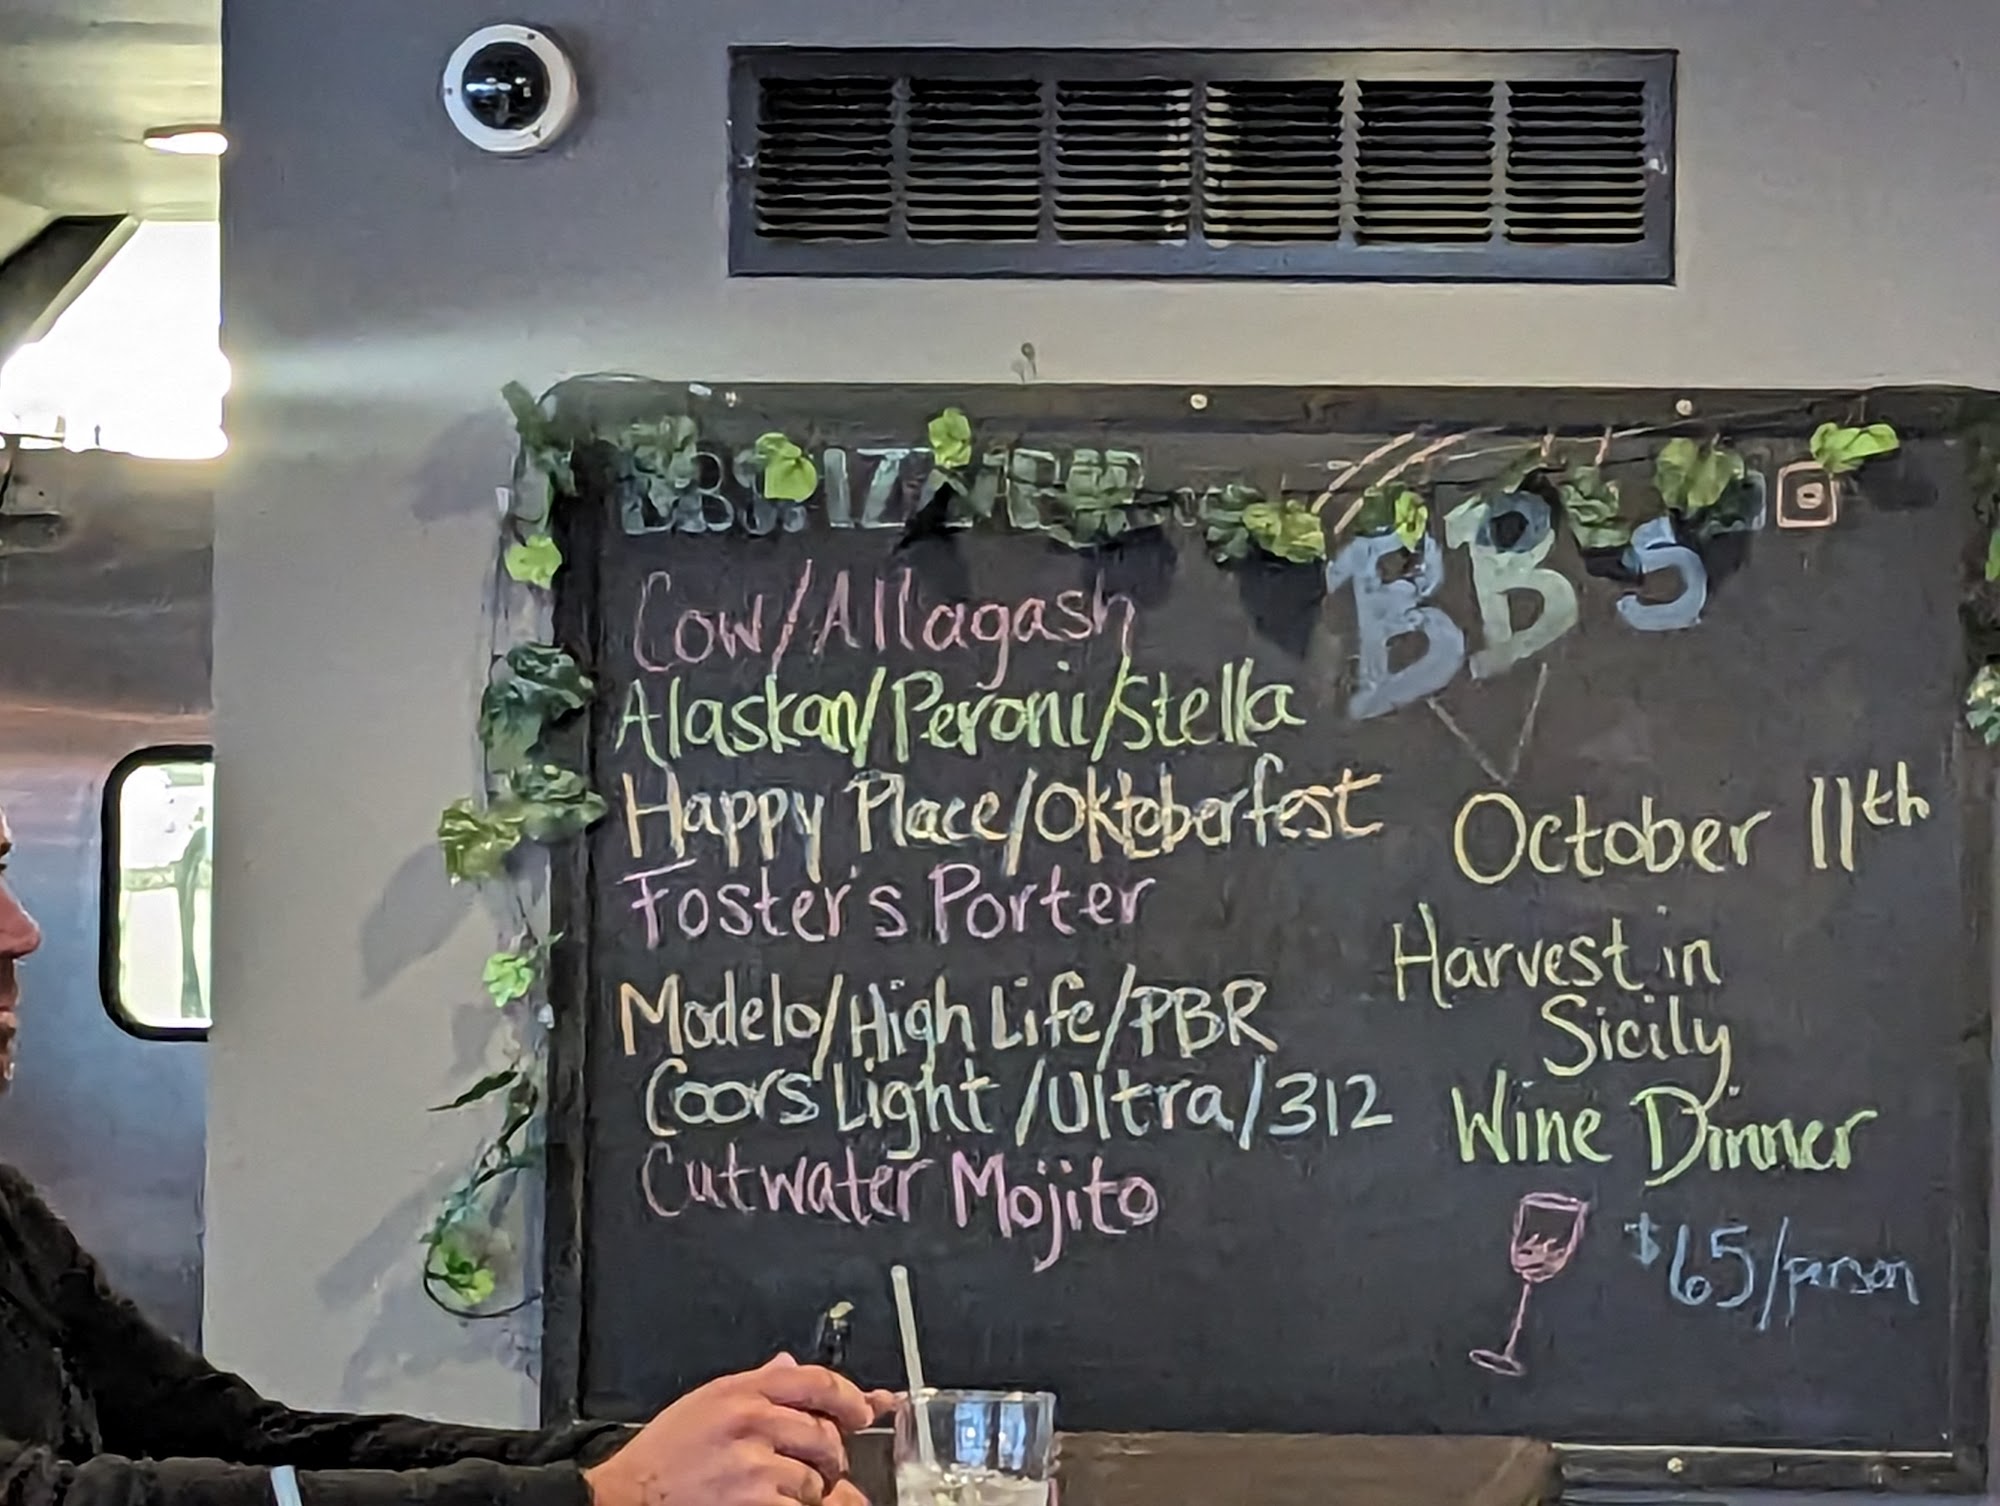 BBs
Cow/Allagash
Alaskan/Peroni/Stella
Happy Place/Oktoberfest
Foster's Porter
Modelo/High Life/PBR
Coors Light/Ultra/312
Cutwater Mojito
October 11th
Harvest in
Sicily
Wine Dinner
$65/person